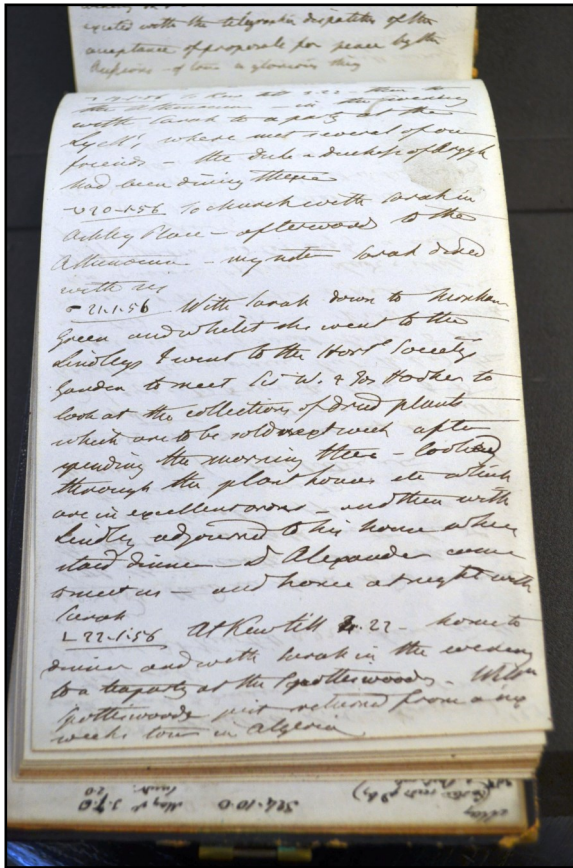 excited with the telegraphic dispatches of the
acceptance of proposals for peace by the
Russians - of course a glorious thing
to Kew till 2.22 - then to
the Athenaeum - in the evening
with Sarah to a party at the
Lyell's, where met several of our
friends - the Duke & Duchess of Argyll
had been dining there
20-1-56 To church with Sarah in
Ashley Place - afterwards to the
Athenaeum - my sister Sarah dined
with us
21.1.56 With Sarah down to Turnham
Green and whilst she went to the
Lindleys I went to the Hortl Society's
Garden to meet Sir W. & Jos Hooker to
look at the collections of dried plants
which are to be sold next week after
spending the morning there - looked
through the plant houses etc which
are in excellent order - and then with
Lindley adjourned to his house where
staid dinner - D Alexander came
to meet us - and home at night with
Sarah
22-1-56 At Kew till 4.22 - home to
dinner and with Sarah in the evening
to a teaparty at the Spottiswoods -
Spottiswoode just returned from a six
weeks tour in Algeria
May
3.7.0
324.10.0